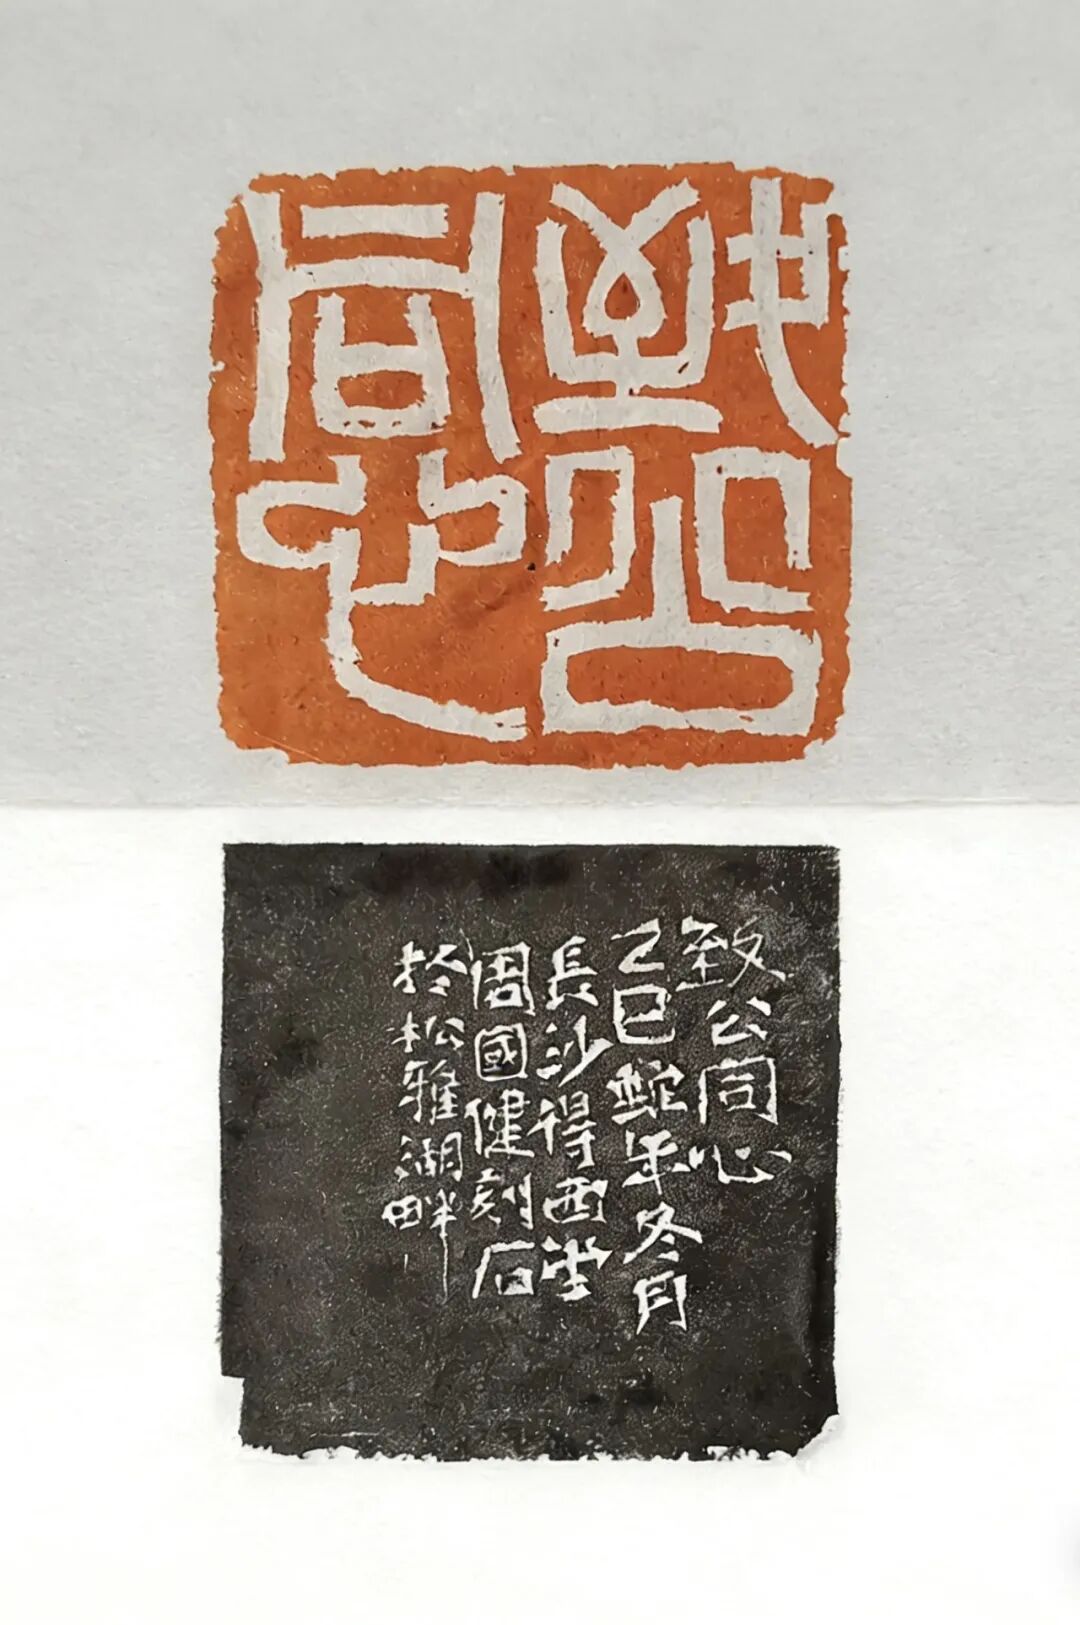 致公同心
致公同心
乙巳蛇年冬月
長沙得西堂
周國健刻石
於松雅湖畔